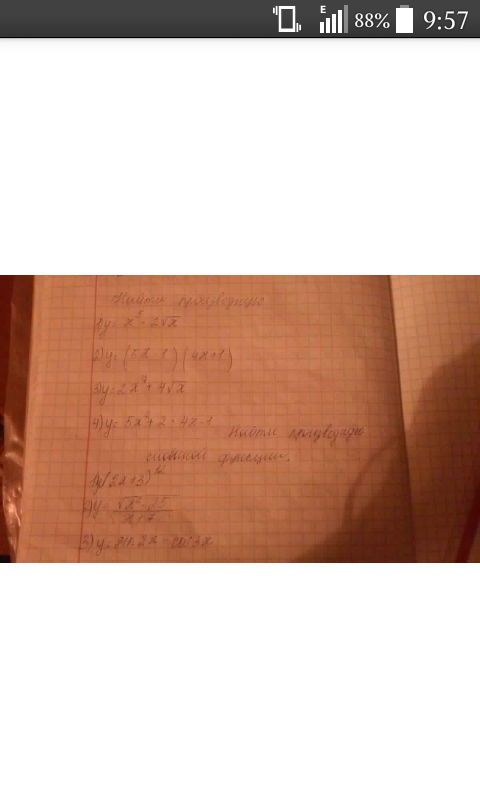 E 88% 9:57
Найти производную
1) y = x⁵ - 2√x
2) y = (5x - 1) (4x+1)
3) y = 2x⁴ + 4√x
4) y = 5x² + 2 + 4x - 1 Найти производную
сложной функции.
1) y(2x+3)¹²
2) y =
3) y = sin 2x - cos 3x